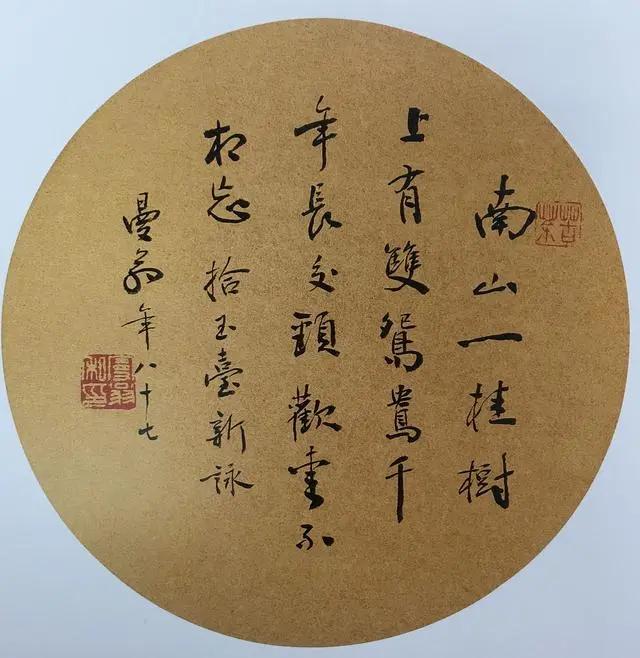 南山一桂樹
上有雙鴛鴦千
年長交頸歡愛不
相忘 拾玉臺新詠
曼翁年八十七